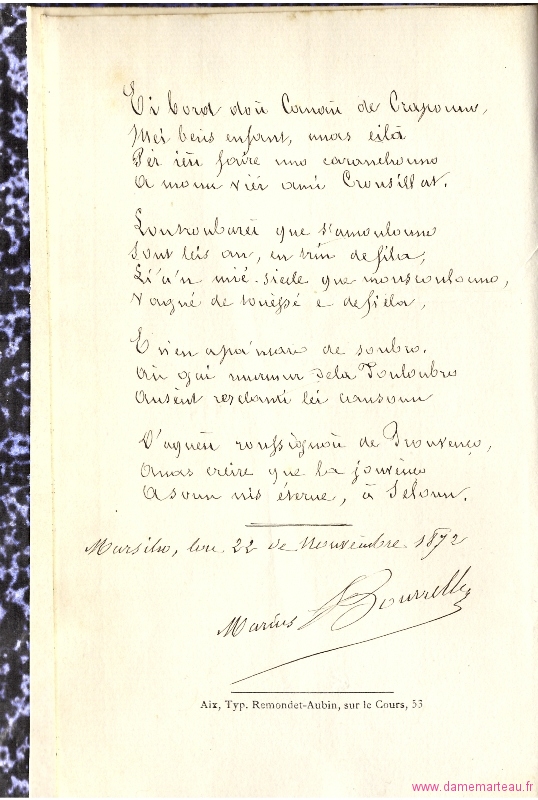 Ei bord doú Canaú de Crapouno,
Mei bens enfant, anas eilà
Per iéu faire uno caranchouno
A moun vièi ami Crousillat.
L'outroubarés que s'amoulouno
Sont leis an, en trin de fila,
Li'a'n mié-siecle que mouscoulouno,
de e defiela,
E n'en apa'ncaro de soubro.
Au gai murmur dela Touloubro
Ausènt resclanti lei cansoun
D'aquéu roussignoú de Prouvenço,
Anas creire que la jouvènço
A soun nis éterne, à Seloun.
Marsiho, lou 22 de Nouvèmbre 1872
Marius Bourrelly
Aix, Typ. Remondet-Aubin, sur le Cours, 53
www.damemarteau.fr